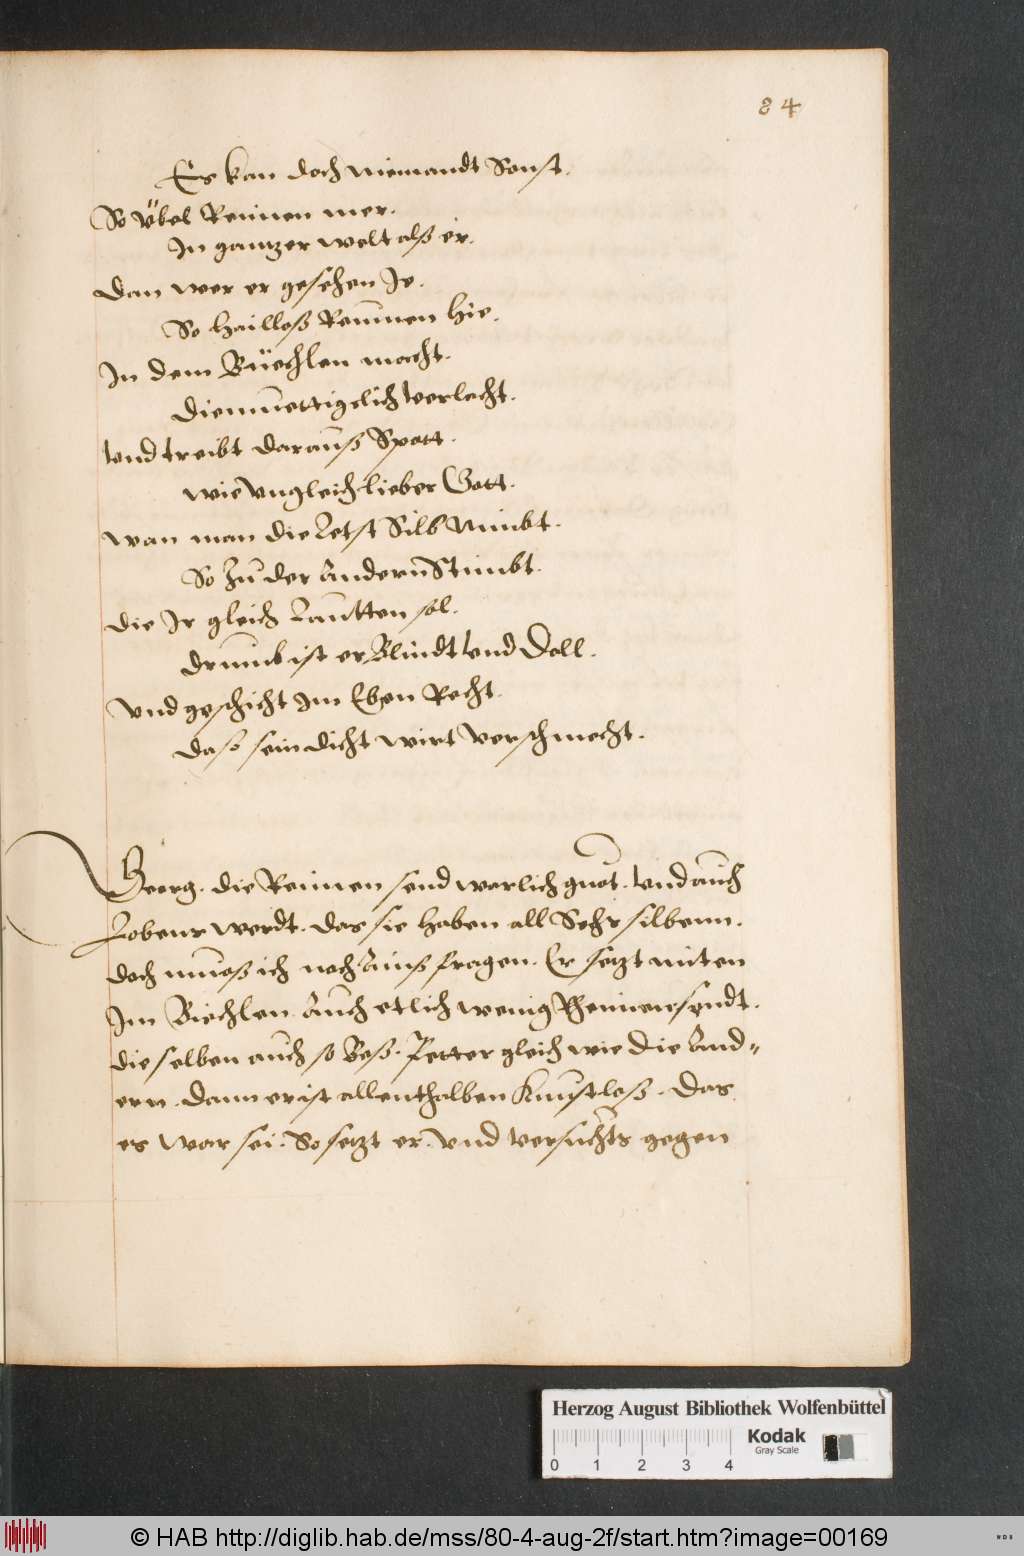 84
Es kan doch niemandt Sonst.
So v̈bel Reimen mer.
In gantzer welt alß er.
Dan wer er gesehen Je.
So hailloß Reimen hie.
In dem Büechlen macht.
Diemüettigclich verlacht.
vnd treibt darauß Spott.
wie vngleich lieber Gott.
wan man die Letst Silb Nimbt.
So Zu der Andern Stimbt.
die Jr gleich Lautten sol.
drumb ist er Blindt vnd Doll.
vnd geschicht Im Eben Recht.
daß sein dicht wirt verschmecht.
Georg. die Reimen send warlich guot. vnd auch
Lobens werdt. das sie haben all Sechs silbenn.
doch muoß ich noch Ainß fragen. Er setzt mitten
Im Biechlen Auch etlich wenig Rheimen send
die selben auch so Beß. Petter gleich wie die And=
ern. dann er ist allenthalben Kunstloß. Das
es war sei. So setzt er. vnd versuchts gegen
Herzog August Bibliothek Wolfenbüttel
Kodak
Gray Scale
0 1 2 3 4
© HAB http://diglib.hab.de/mss/80-4-aug-2f/start.htm?image=00169